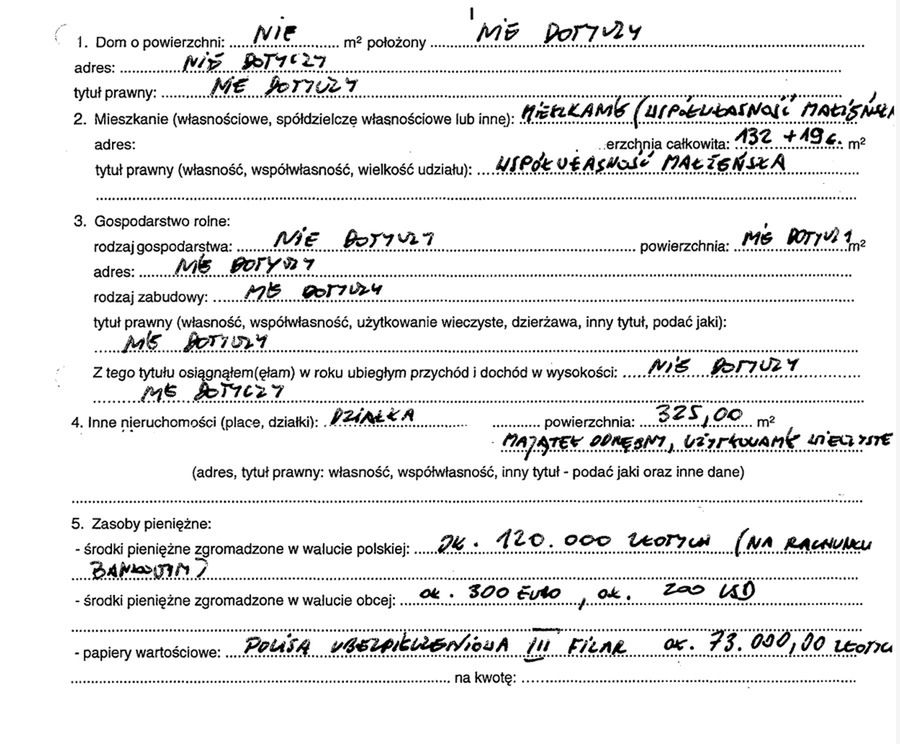 I
1. Dom o powierzchni: NIE m² położony NIE DOTYCZY
adres: NIE DOTYCZY
tytuł prawny: NIE DOTYCZY
2. Mieszkanie (własnościowe, spółdzielcze własnościowe lub inne): MIESZKANIE (WSPÓŁWŁASNOŚĆ MAŁŻEŃSKA
adres: erzchnia całkowita: 132 + 19 m²
tytuł prawny (własność, współwłasność, wielkość udziału): WSPÓŁWŁASNOŚĆ MAŁŻEŃSKA
3. Gospodarstwo rolne:
rodzaj gospodarstwa: NIE DOTYCZY powierzchnia: NIE DOTYCZY m²
adres: NIE DOTYCZY
rodzaj zabudowy: NIE DOTYCZY
tytuł prawny (własność, współwłasność, użytkowanie wieczyste, dzierżawa, inny tytuł, podać jaki):
NIE DOTYCZY
Z tego tytułu osiągnąłem(ęłam) w roku ubiegłym przychód i dochód w wysokości: NIE DOTYCZY
NIE DOTYCZY
4. Inne nieruchomości (place, działki): DZIAŁKA powierzchnia: 325,00 m²
MAJĄTEK ODRĘBNY, UŻYTKOWANIE WIECZYSTE
(adres, tytuł prawny: własność, współwłasność, inny tytuł - podać jaki oraz inne dane)
5. Zasoby pieniężne:
- środki pieniężne zgromadzone w walucie polskiej: OK. 120.000 ZŁOTYCH (NA RACHUNKU
BANKOWYM)
- środki pieniężne zgromadzone w walucie obcej: ok. 300 EURO, ok. 200 USD
- papiery wartościowe: POLISA UBEZPIECZENIOWA III FILAR ok. 73.000,00 ZŁOTYCH
na kwotę: